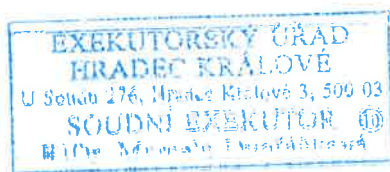 EXEKUTORSKÝ ÚŘAD
HRADEC KRÁLOVÉ
U Soudu 276, Hradec Králové 3, 500 03
SOUDNÍ EXEKUTOR 10